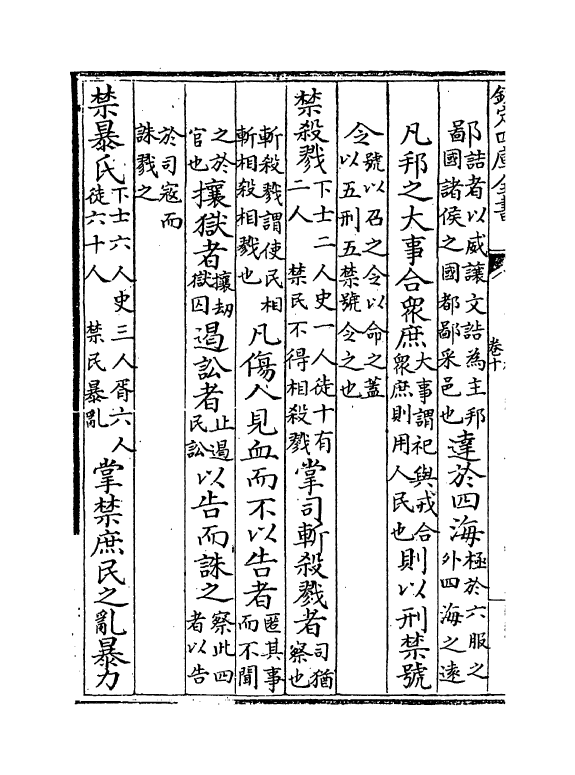 欽定四庫全書 卷十
邦詰者以威讓文誥為主邦鄙國諸侯之國都鄙采邑也達於四海極於六服之外四海之遠
凡邦之大事合眾庶大事謂祀與戎合眾庶則用人民也則以刑禁號
令號以召之令以命之蓋以五刑五禁號令之也
禁殺戮下士二人史一人徒十有二人 禁民不得相殺戮掌司斬殺戮者司猶察也
斬殺戮謂使民相斬相殺相戮也凡傷人見血而不以告者匿其事而不聞
之於官也攘獄者攘劫獄囚遏訟者止遏民訟以告而誅之察此四者以告
於司寇而誅戮之
禁暴氏下士六人史三人胥六人徒六十人 禁民暴亂掌禁庶民之亂暴力